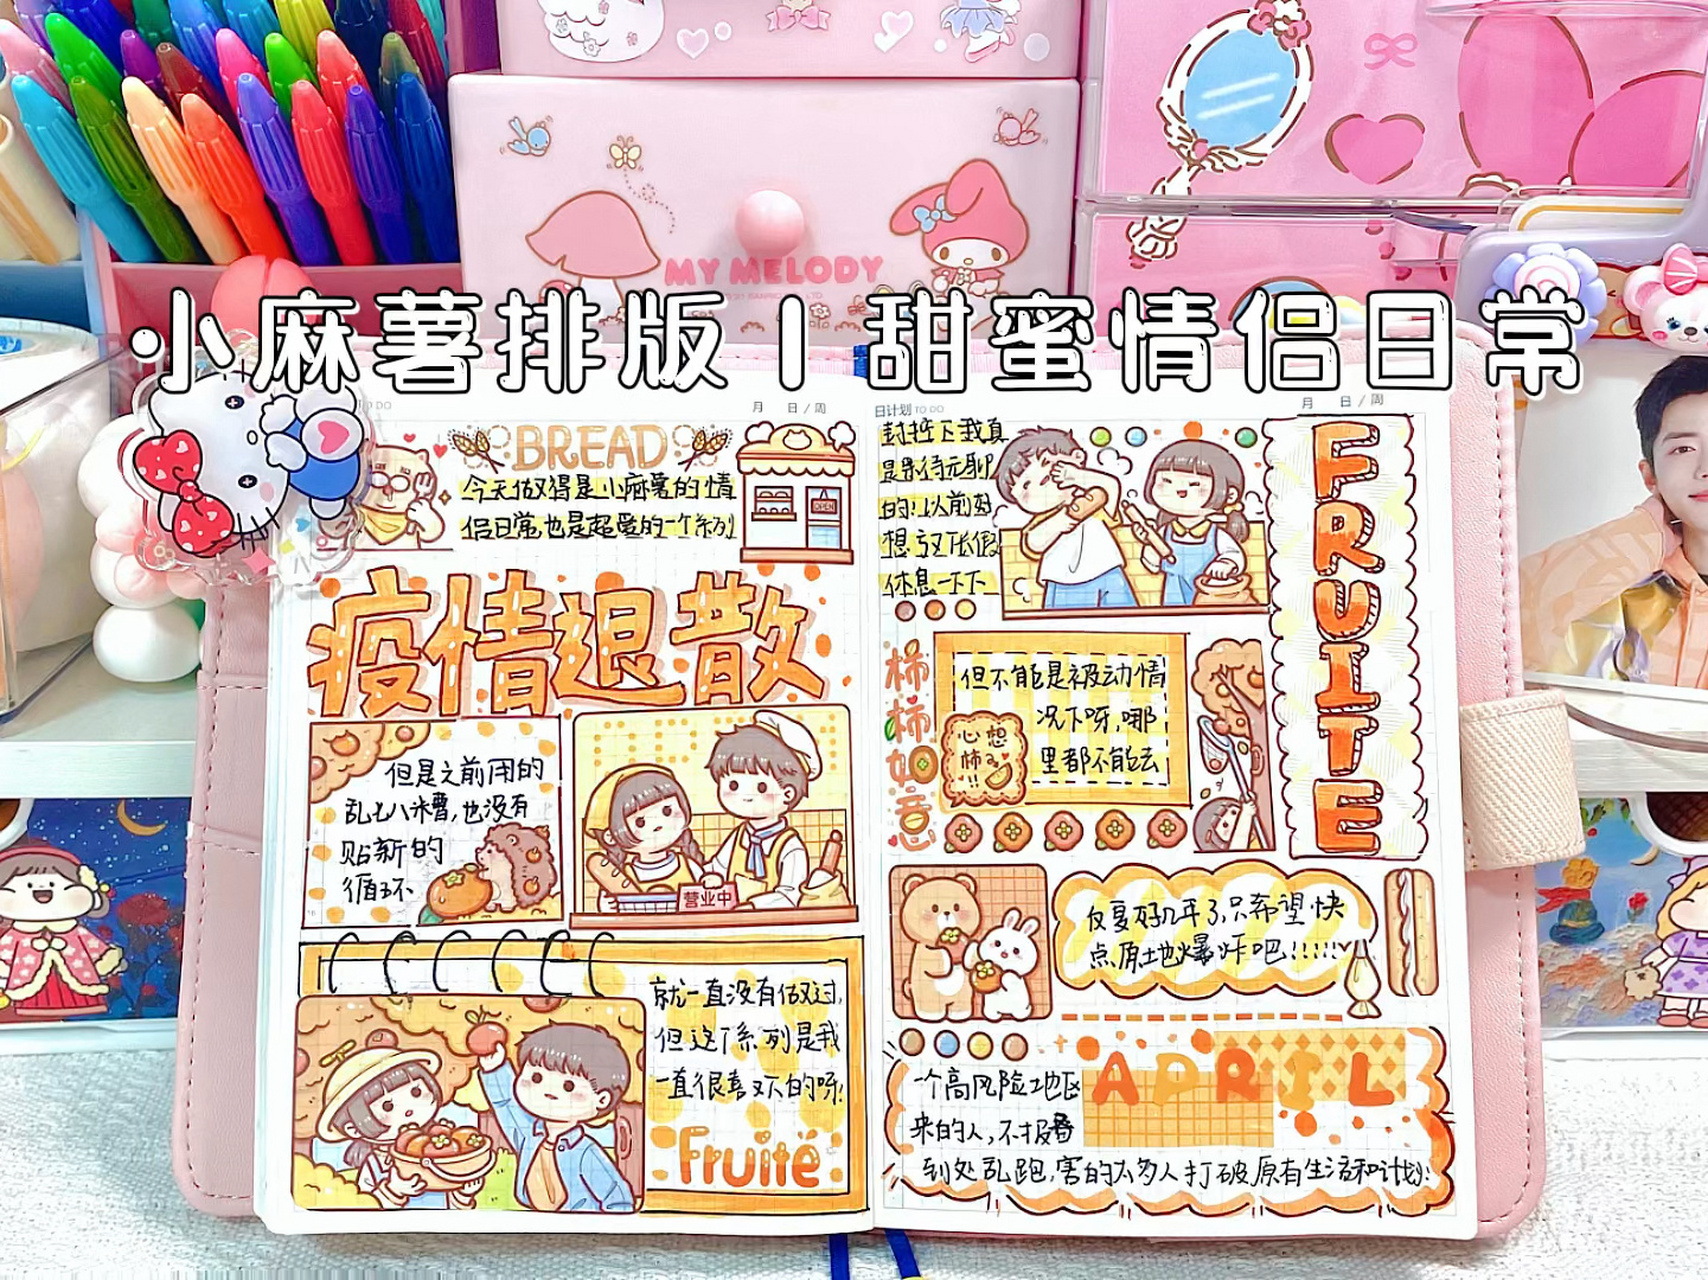 MY MELODY
小麻薯排版 | 甜蜜情侣日常
TO DO
月 日/周
BREAD
今天做得是小麻薯的情
侣日常,也是超爱的一个系列
OPEN
疫情退散
但是之前用的
乱七八糟,也没有
贴新的
循环
营业中
就一直没有做过,
但这个系列是我
一直很喜欢的呀!
Fruité
日计划 TO DO
月 日/周
封控下我真
是无聊
的!以前好
想
休息一下下
FRUITE
柿柿如意
但不能是被动情
况下呀,哪
里都不能去
心想
柿
!!
反复好几年了,只希望快
点原地爆炸吧!!!!!
APRIL
一个高风险地区
来的人,不报备
到处乱跑,害的太多人打破原有生活和计划!